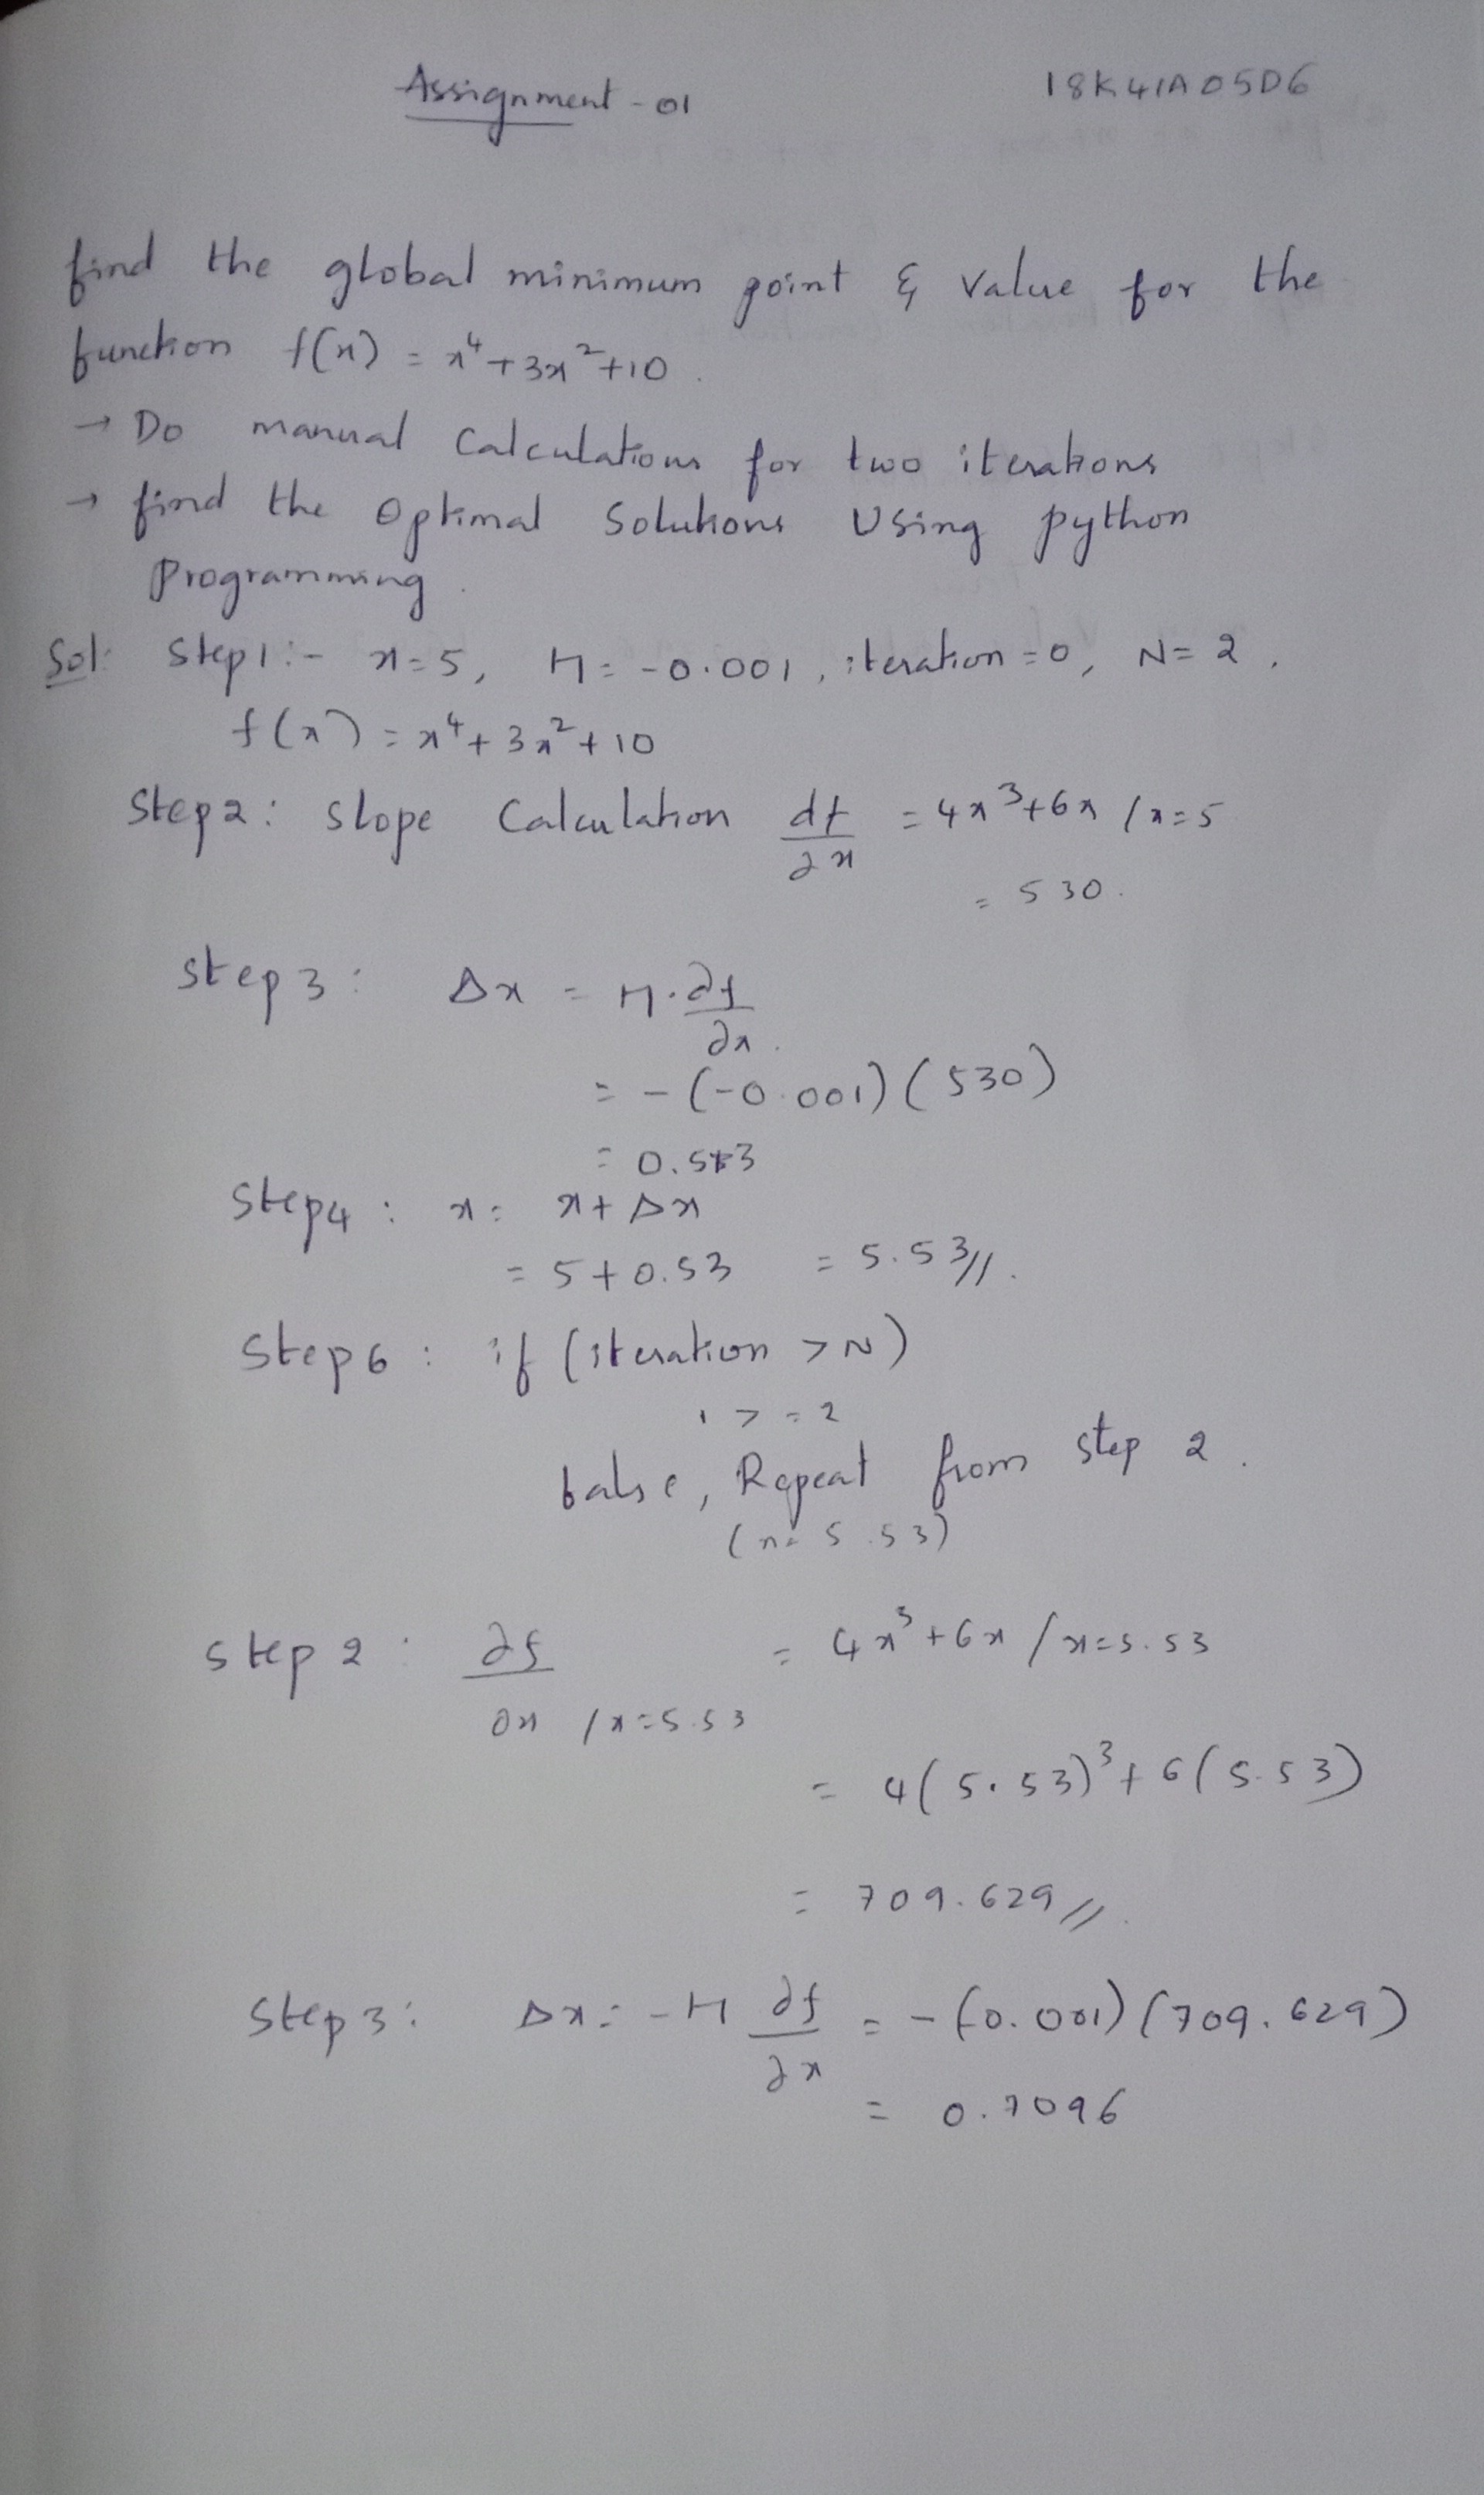 Assignment - 01
18K41A05D6
find the global minimum point & value for the
function f(x) = x⁴+3x²+10.
→ Do manual Calculations for two iterations
→ find the optimal Solutions Using python
programming.
Sol: Step1:- x=5, η= -0.001, iteration=0, N=2,
f(x) = x⁴+3x²+10
Step2: slope Calculation df/∂x = 4x³+6x /x=5
= 530.
step3: Δx = η.∂f/∂x.
= -(-0.001)(530)
= 0.53
Step4: x= x+Δx
= 5+0.53 = 5.53//.
Step6: if (iteration >N)
1 >= 2
false, Repeat from step 2.
(x= 5.53)
step 2: ∂f/∂x /x=5.53 = 4x³+6x /x=5.53
= 4(5.53)³+6(5.53)
= 709.629//.
Step3: Δx= -η ∂f/∂x = -(-0.001)(709.629)
= 0.7096